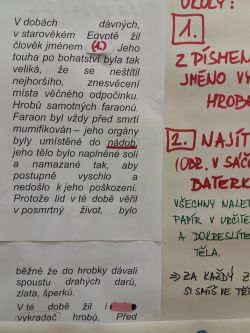 V dobách dávných,
v starověkém Egyptě žil
člověk jménem (1.) Jeho
touha po bohatství byla tak
veliká, že se neštítil
nejhoršího, znesvěcení
místa věčného odpočinku.
Hrobů samotných faraonů.
Faraon byl vždy před smrti
mumifikován – jeho orgány
byly umístěné do nádob,
jeho tělo bylo naplněné solí
a namazané tak, aby
postupně vyschlo a
nedošlo k jeho poškození.
Protože lid v té době věřil
v posmrtný život, bylo
běžné že do hrobky dávali
spoustu drahých darů,
zlata, šperků.
V té době žil i
vykradač hrobů, Před
ÚKOLY:
1.
Z PÍSMEN
JMÉNO VY
HROBŮ
2. NAJÍT
(ODR. V SÁČ
BATERK
VŠECHNY NALE
PAPÍR V URČITÉ
A DOKRESLIT
TĚLA.
⇒ ZA KAŽDÝ Z
SI SMÍŠ VE TĚ